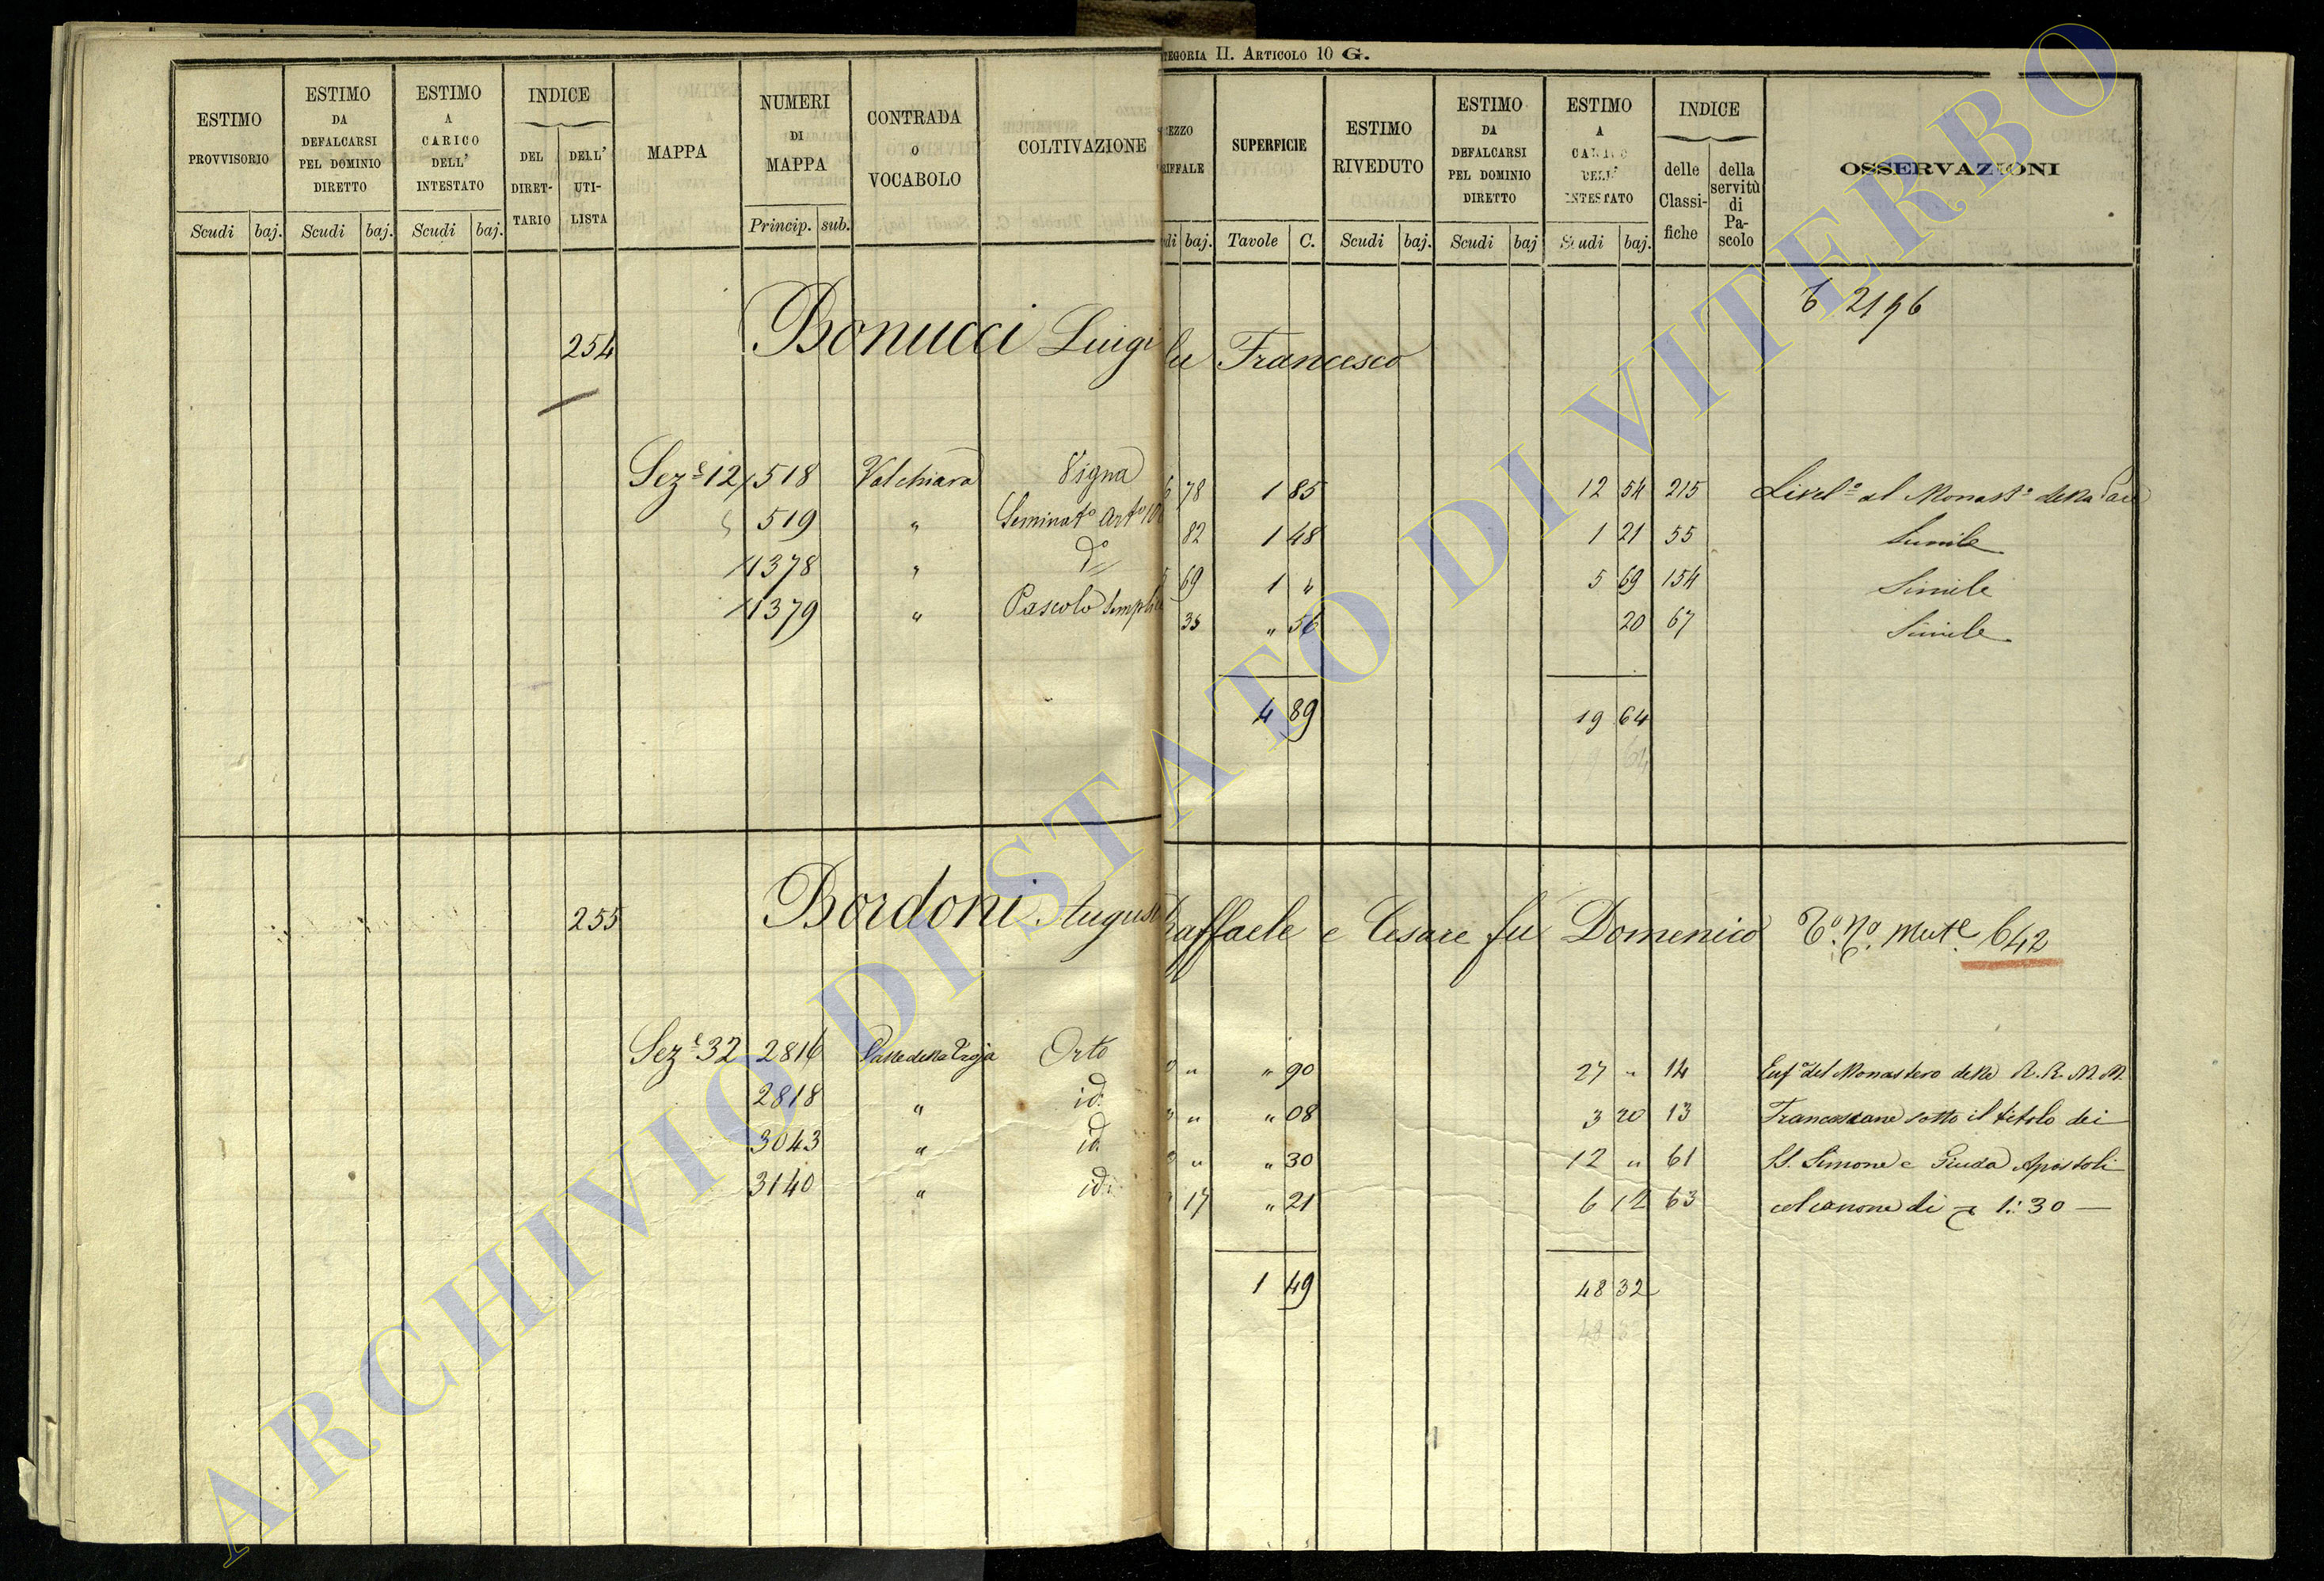 TEGORIA II. ARTICOLO 10 G.
ESTIMO PROVVISORIO
ESTIMO DA DEFALCARSI PEL DOMINIO DIRETTO
ESTIMO A CARICO DELL' INTESTATO
INDICE
DEL DIRET-TARIO
DELL' UTI-LISTA
MAPPA
NUMERI DI MAPPA
CONTRADA O VOCABOLO
COLTIVAZIONE
EZZO RIFFALE
SUPERFICIE
ESTIMO RIVEDUTO
ESTIMO DA DEFALCARSI PEL DOMINIO DIRETTO
ESTIMO A CARICO DELL' INTESTATO
INDICE
delle Classi-fiche
della servitù di Pa-scolo
OSSERVAZIONI
Scudi baj. Scudi baj. Scudi baj. Princip. sub. di baj. Tavole C. Scudi baj. Scudi baj Scudi baj.
254 Bonucci Luigi fu Francesco
Sez.e 12 518 Valchiara Vigna 6 78 1 85 12 54 215 Livel.o al Monast.o della Pace
519 " Seminat.o Art.o 10 82 1 48 1 21 55 Simile
1378 " d.o 5 69 1 " 5 69 154 Simile
1379 " Pascolo Semplice 35 " 56 20 67 Simile
4 89 19 64
19 64
255 Bordoni August Raffaele e Cesare fu Domenico 642
Sez.e 32 2816 Valle della Troja Orto " " 90 27 " 14 Enf.a del Monastero delle R.R. M.M.
2818 " id. " " 08 3 20 13 Francescane sotto il titolo dei
3043 " id. " " 30 12 " 61 SS. Simone e Giuda Apostoli
3140 " id. 17 " 21 6 12 63 col canone di 1:30 —
1 49 48 32
48 32
ARCHIVIO DI STATO DI VITERBO